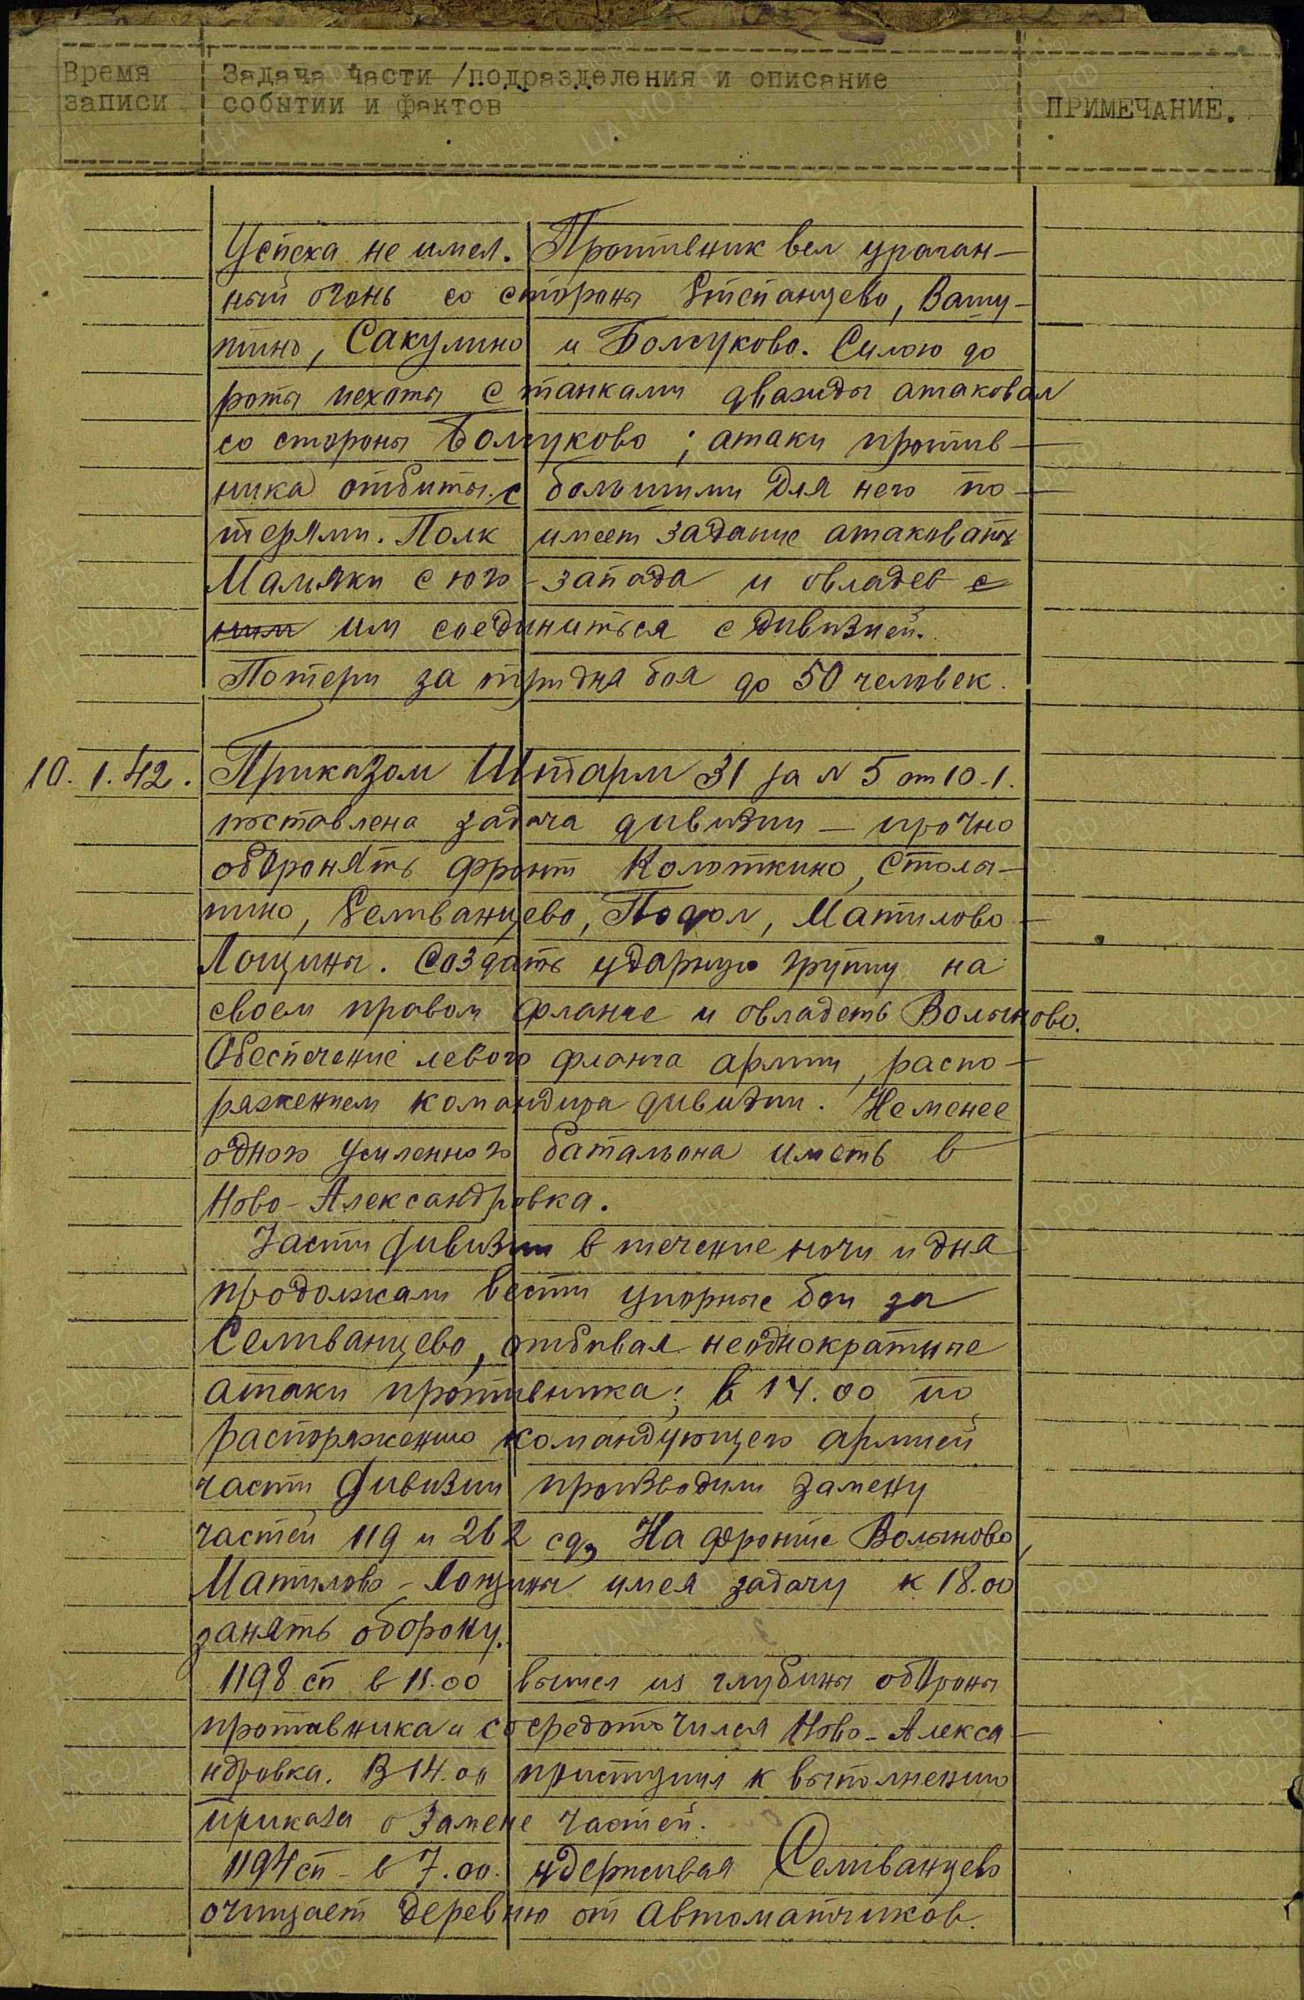 Время записи
Задача части /подразделения и описание
событий и фактов
ПРИМЕЧАНИЕ.
Успеха не имел. Противник вел ураган-
ный огонь со стороны Степанцево, Вашу-
тино, Сакулино и Болсуково. Силою до
роты пехоты с танками дважды атаковал
со стороны Болсуково; атаки против-
ника отбиты с большими для него по-
терями. Полк имеет задание атаковать
Мальяки с юго-запада и овладев с
ним им соединиться с дивизией.
Потери за три дня боя до 50 человек.
10.1.42. Приказом Штарм 31 за N 5 от 10.1.
поставлена задача дивизии – прочно
оборонять фронт Колоткино, Столы-
пино, Селиванцево, Подол, Матилово-
Лощины. Создать ударную группу на
своем правом фланге и овладеть Волыново.
Обеспечение левого фланга армии, распо-
ряжением командира дивизии. Не менее
одного усиленного батальона иметь в
Ново-Александровка.
Части дивизии в течение ночи и дня
продолжали вести упорные бои за
Селиванцево, отбивая неоднократные
атаки противника; в 14.00 по
распоряжению командующего армией
части дивизии производили замену
частей 119 и 262 сд, На фронте Волыново,
Матилово-Лощины имея задачу к 18.00
занять оборону.
1198 сп в 11.00 вышел из глубины обороны
противника и сосредоточился Ново-Алекса-
ндровка. В 14.00 приступил к выполнению
приказа о замене частей.
1194 сп - в 7.00. удерживая Селиванцево
очищает деревню от автоматчиков.